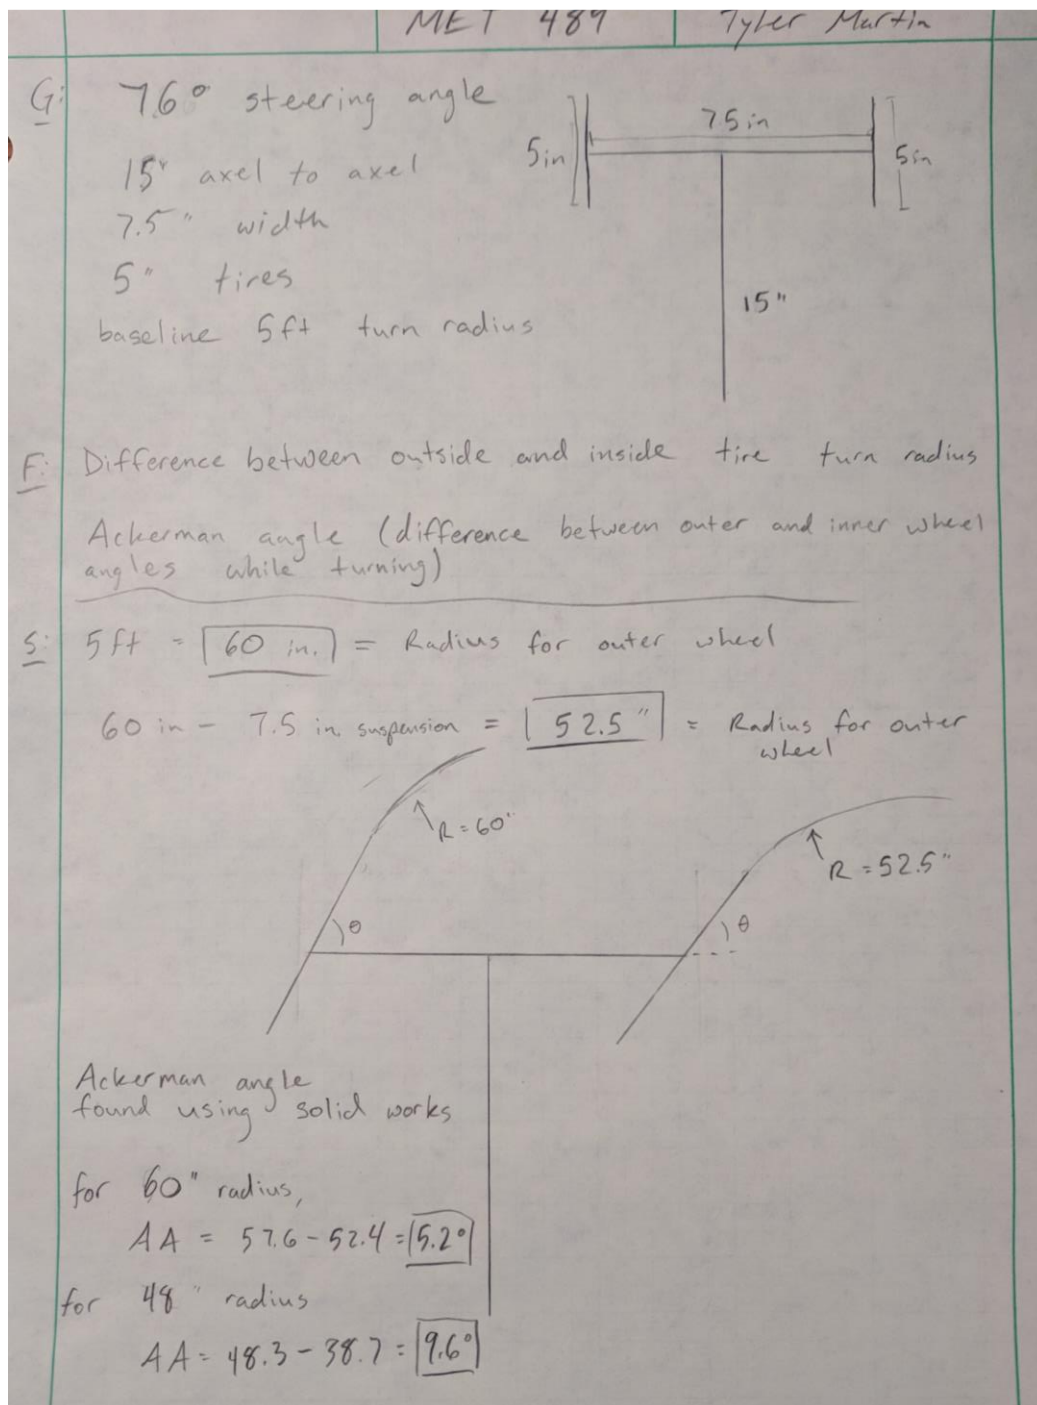 MET 489 Tyler Martin
G: 76° steering angle
15" axel to axel
7.5" width
5" tires
baseline 5ft turn radius
7.5 in
5in
5in
15"
F: Difference between outside and inside tire turn radius
Ackerman angle (difference between outer and inner wheel
angles while turning)
S: 5ft = 60 in. = Radius for outer wheel
60 in - 7.5 in suspension = 52.5" = Radius for outer
wheel
R=60"
R=52.5"
θ
θ
Ackerman angle
found using solid works
for 60" radius,
AA = 57.6-52.4=5.2°
for 48" radius
AA= 48.3-38.7=9.6°